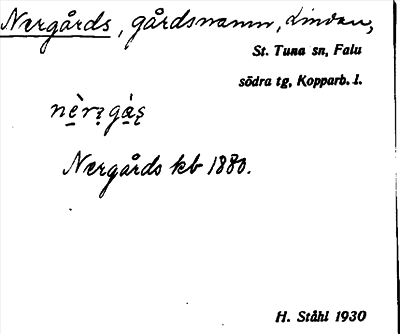 Nergårds, gårdsnamn, Lindan,
St. Tuna sn, Falu
södra tg, Kopparb. l.
Nergårds kb 1880.
H. Ståhl 1930